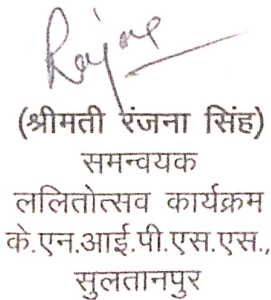 Ranjana
(श्रीमती रंजना सिंह)
समन्वयक
ललितोत्सव कार्यक्रम
के.एन.आई.पी.एस.एस.,
सुलतानपुर